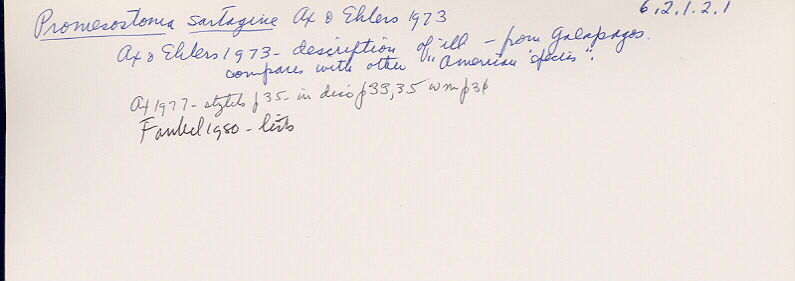 Promesostoma sartagine Ax & Ehlers 1973 6.2.1.2.1
Ax & Ehlers 1973 - description & ill - from Galapagos.
compares with other "American species".
Ax 1977 - stylets p35 - in disc p33,35 w m p34
Faubel 1980 - lists